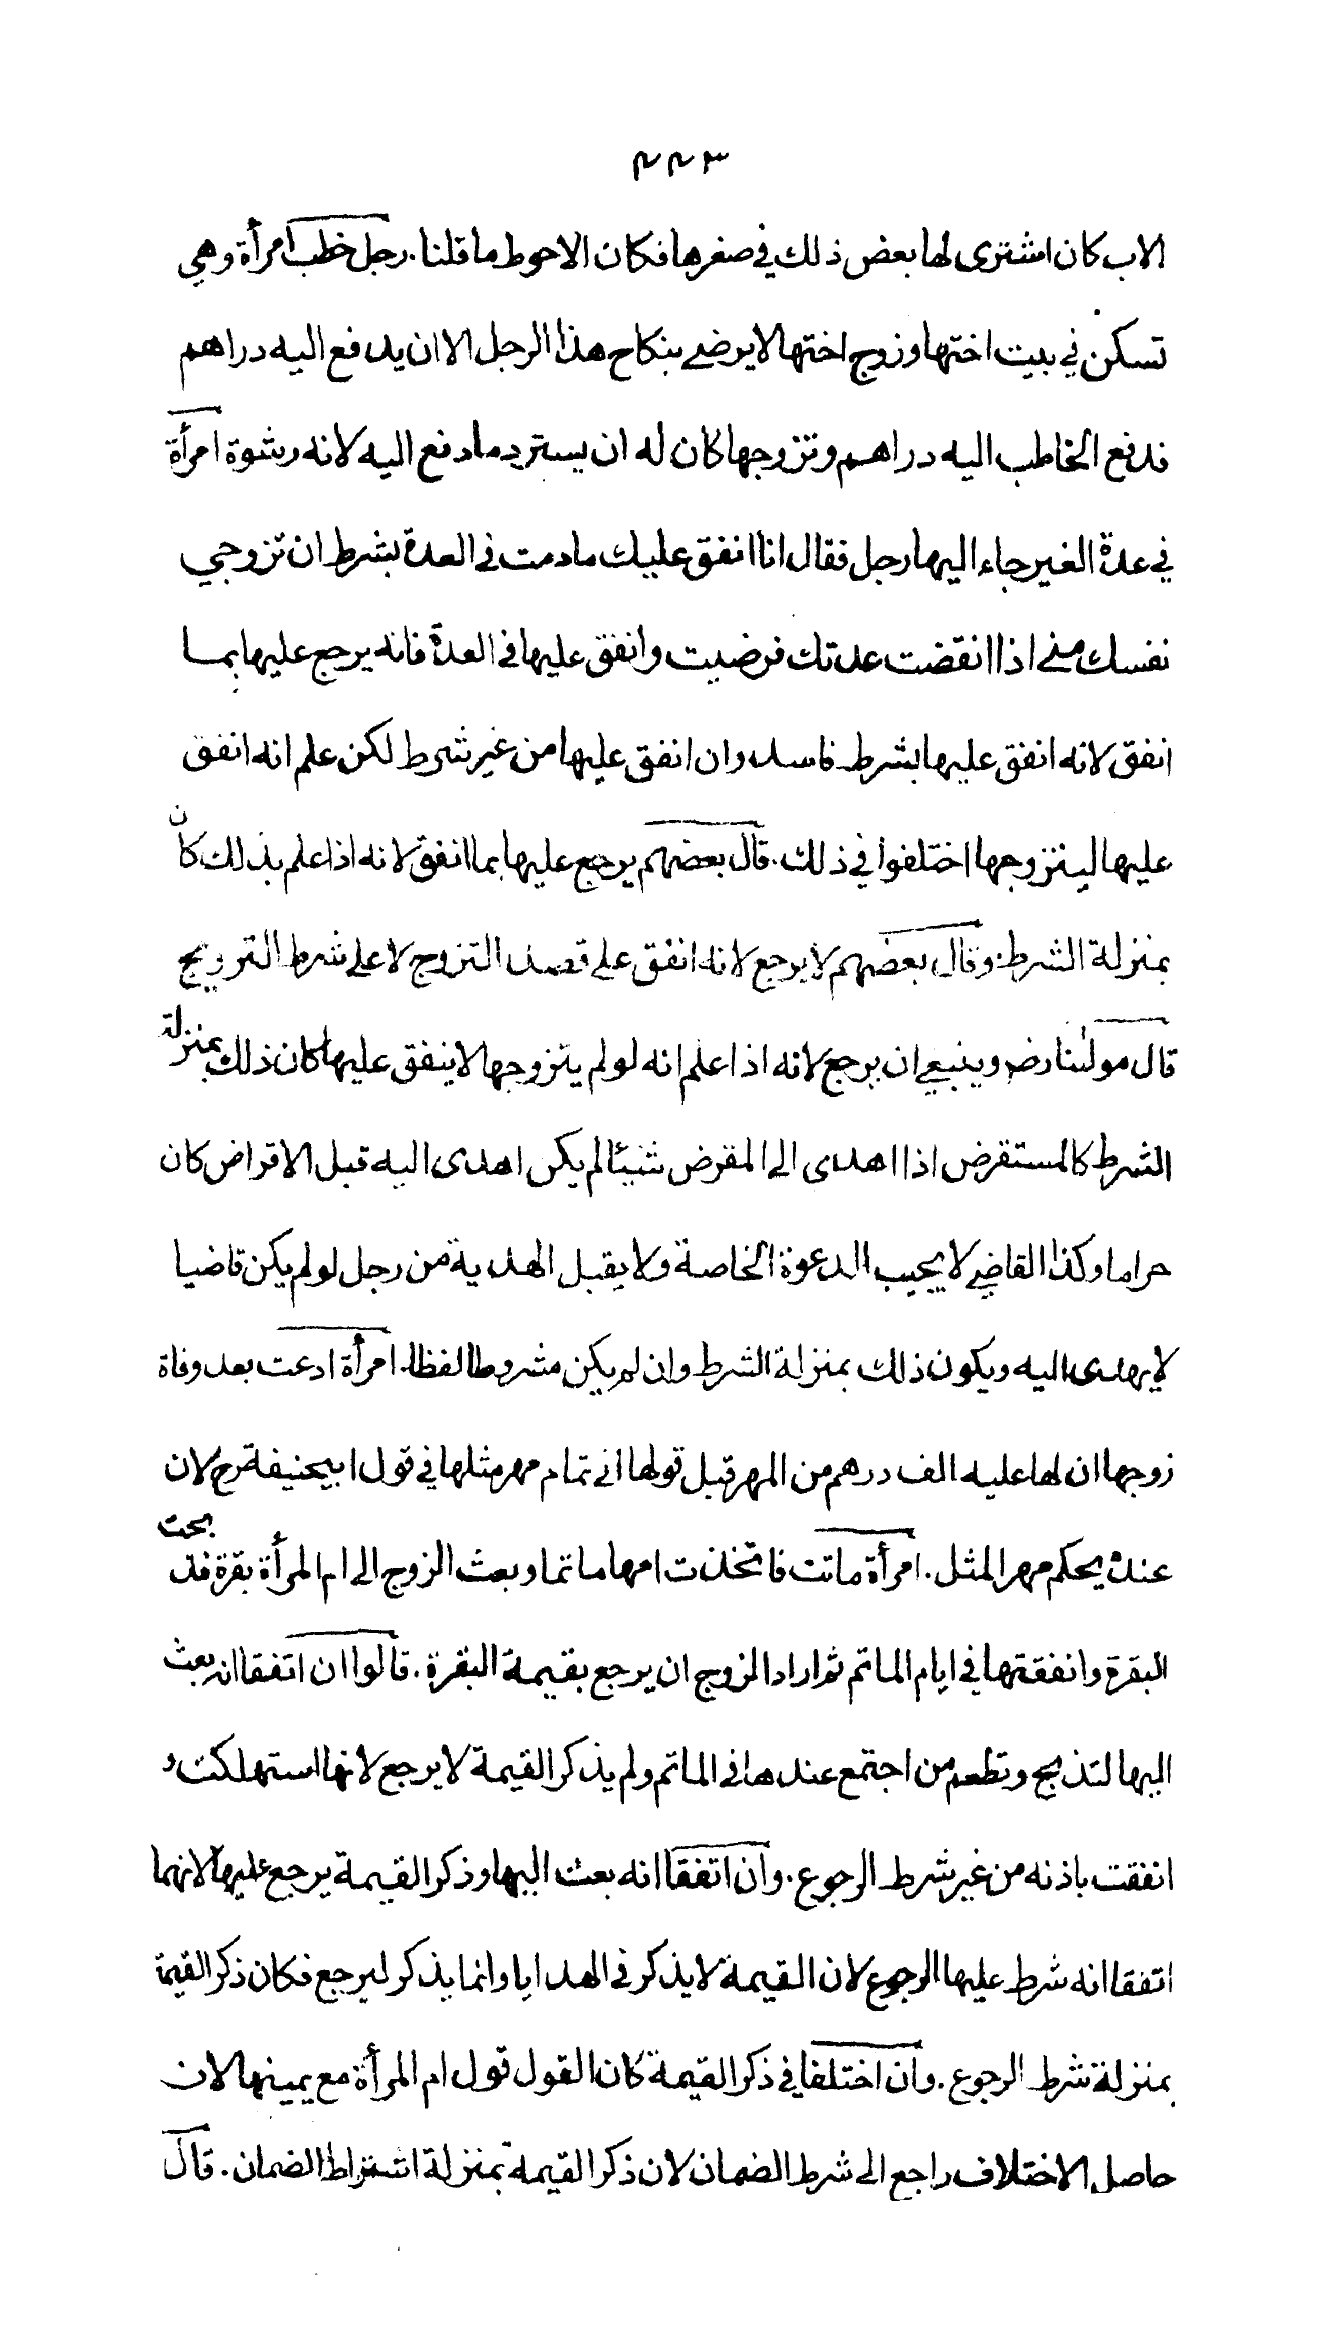 ٤٤٣
الاب كان اشترى لها بعض ذلك في صغرها فكان الاحوط ما قلنا. رجل خطب امرأة وهي
تسكن في بيت اختها وزوج اختها لا يرضى بنكاح هذا الرجل الا ان يدفع اليه دراهم
فدفع الخاطب اليه دراهم وتزوجها كان له ان يسترد ما دفع اليه لانه رشوة امرأة
في عدة الغير جاء اليها رجل فقال انا انفق عليك ما دمت في العدة بشرط ان تزوجي
نفسك منى اذا انقضت عدتك فرضيت وانفق عليها في العدة فانه يرجع عليها بما
انفق لانه انفق عليها بشرط فاسد وان انفق عليها من غير شرط لكن علم انه انفق
عليها ليتزوجها اختلفوا في ذلك. قال بعضهم يرجع عليها بما انفق لانه اذا علم بذلك كان
بمنزلة الشرط. وقال بعضهم لا يرجع لانه انفق على قصد التزوج لا على شرط التزويج
قال مولنا رض وينبغي ان يرجع لانه اذا علم انه لو لم يتزوجها لا ينفق عليها كان ذلك بمنزلة
الشرط كالمستقرض اذا اهدى الى المقرض شيئا لم يكن اهدى اليه قبل الاقراض كان
حراما وكذا القاضي لا يجيب الدعوة الخاصة ولا يقبل الهدية من رجل لو لم يكن قاضيا
لا يهدى اليه ويكون ذلك بمنزلة الشرط وان لم يكن مشروطا لفظا. امرأة ادعت بعد وفاة
زوجها ان لها عليه الف درهم من المهر قبل قولها الى تمام مهر مثلها في قول ابيحنيفة رح لان
عنده يحكم مهر المثل. امرأة ماتت فاتخذت امها ماتما وبعث الزوج الى ام المرأة بقرة فذبحت
البقرة وانفقتها في ايام الماتم ثم اراد الزوج ان يرجع بقيمة البقرة. قالوا ان اتفقا انه بعث
اليها لتذبح وتطعم من اجتمع عندها في الماتم ولم يذكر القيمة لا يرجع لانها استهلكت و
انفقت باذنه من غير شرط الرجوع. وان اتفقا انه بعث اليها وذكر القيمة يرجع عليها لانهما
اتفقا انه شرط عليها الرجوع لان القيمة لا يذكر في الهدايا وانما يذكر ليرجع فكان ذكر القيمة
بمنزلة شرط الرجوع. وان اختلفا في ذكر القيمة كان القول قول ام المرأة مع يمينها لان
حاصل الاختلاف راجع الى شرط الضمان لان ذكر القيمة بمنزلة اشتراط الضمان. قال